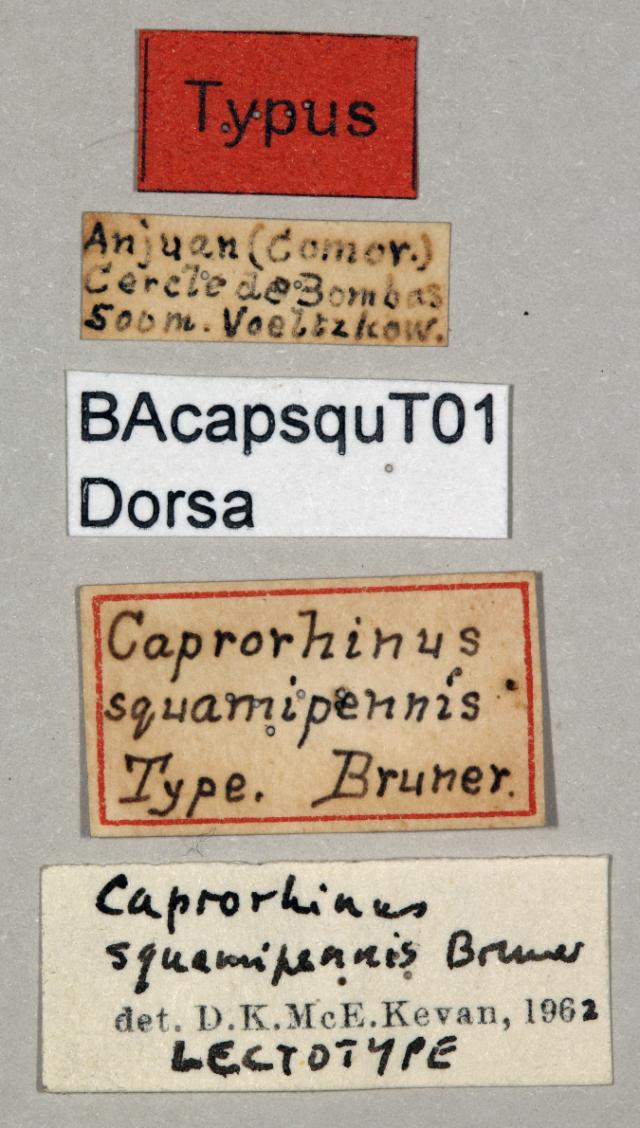 Typus
Anjuan (Comor.)
Cercle de Bombas
500m. Voeltzkow.
BAcapsquT01
Dorsa
Caprorhinus
squamipennis
Type. Bruner.
Caprorhinus
squamipennis Bruner
det. D.K.McE.Kevan, 1962
LECTOTYPE